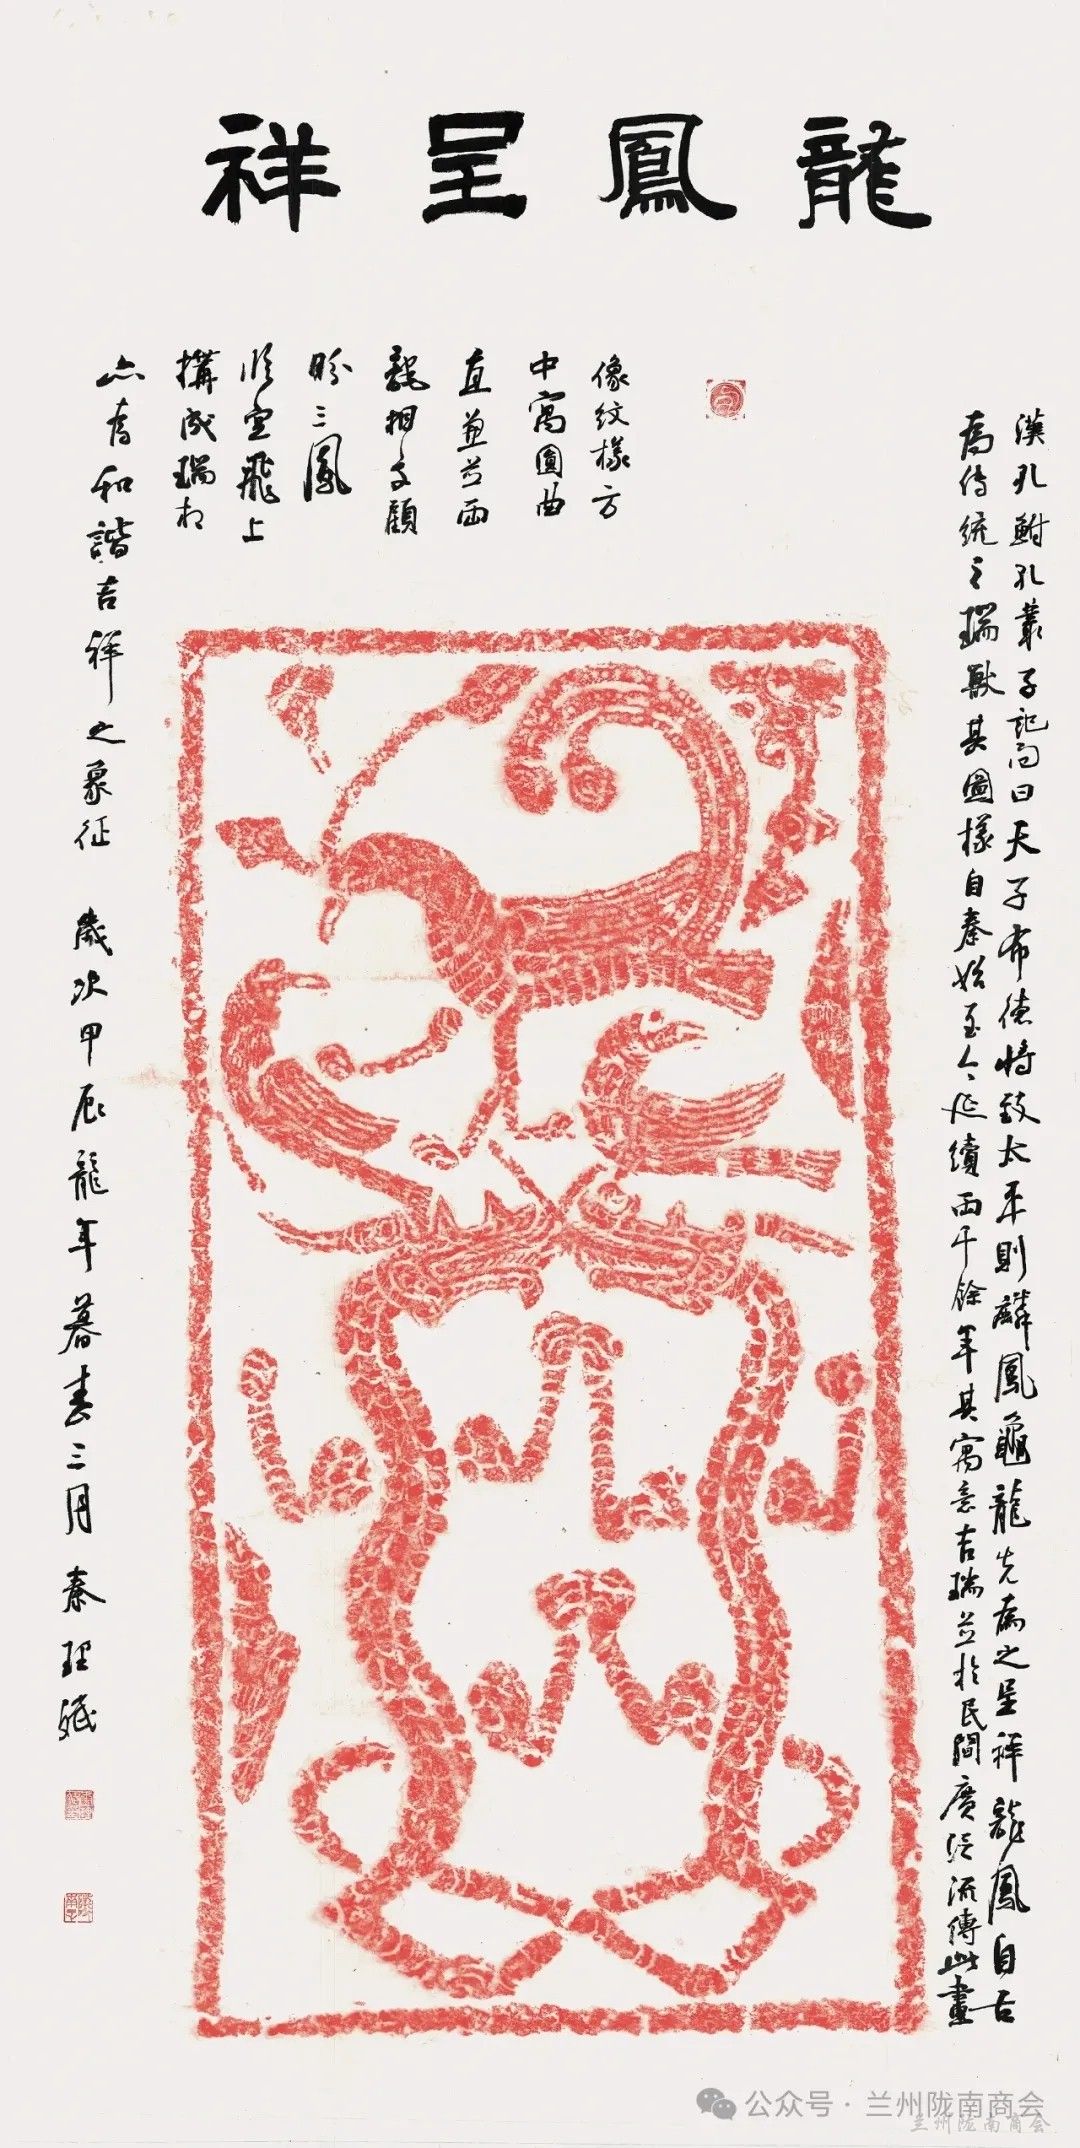 龍鳳呈祥
漢孔鮒孔叢子記問曰天子布德將致太平則麟鳳龜龍先為之呈祥龍鳳自古
為傳統之瑞獸其圖樣自秦始至今延續兩千餘年其寓意吉瑞並於民間廣泛流傳此畫
像紋樣方
中寓圓曲
直並茂兩
龍相交顧
盼三鳳
臨空飛上
構成瑞相
亦有和諧吉祥之象征 歲次甲辰龍年暮春三月秦理斌
公众号·兰州陇南商会
兰州陇南商会